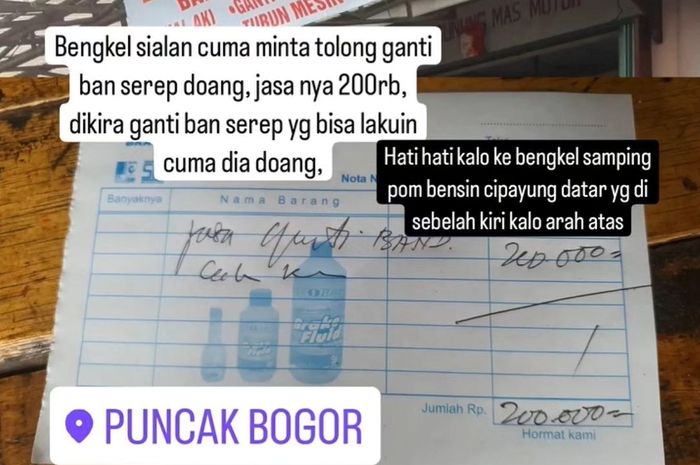 LAKI
GANT
TURUN MESIN
NUNG MAS MOTOR
Bengkel sialan cuma minta tolong ganti
ban serep doang, jasa nya 200rb,
dikira ganti ban serep yg bisa lakuin
cuma dia doang,
Hati hati kalo ke bengkel samping
pom bensin cipayung datar yg di
sebelah kiri kalo arah atas
Nota N
Banyaknya Nama Barang
Jasa Ganti BAND. 200.000=
Brake
Fluid
Jumlah Rp. 200.000=
Hormat kami
PUNCAK BOGOR